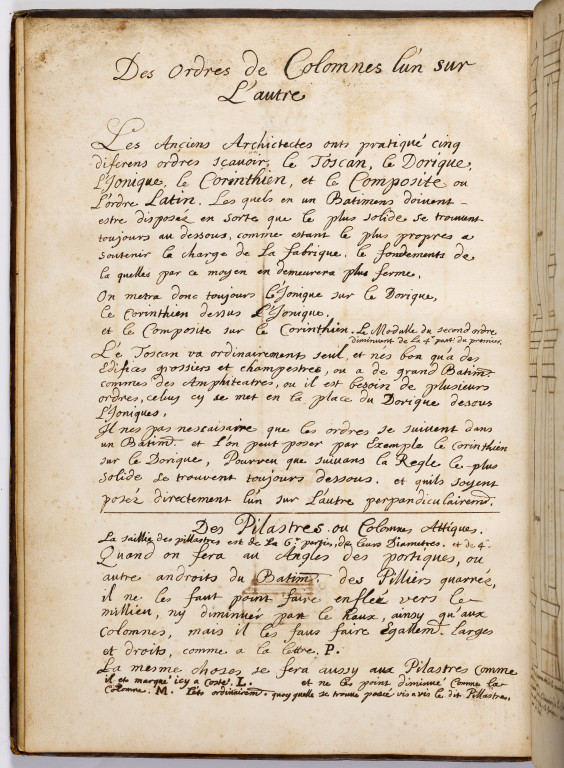 Des Ordres de Colomnes lún sur
L'autre
Les Anciens Architectes onts pratiqué cinq
diferens ordres sçauoir, le Toscan, le Dorique,
L'Jonique, le Corinthien, et le Composite ou
L'ordre Latin. Les quels en un Batimens doivent
estre disposez en sorte que le plus solide se trouuent
toujours au dessous. comme estant le plus propres a
soutenir la charge de La fabrique. le fondements de
la quelles par ce moyen en demeurera plus ferme.
On metra donc toujours L'Jonique sur le Dorique,
le Corinthien dessus L'Jonique.
et le Composite sur le Corinthien. Le Modulle du second ordre
diminuent de la 4e part. du premier.
L'e Toscan va ordinairement seul, et n'es bon qu'a des
Edifices grossiers et champestres, ou a de grand Batimt.
commes des Amphiteatres, ou il est besoin de plusieurs
ordres, celuy cy se met en la place du Dorique desous
L'Joniques,
Jl n'es pas nescaisaire que les ordres se suivent dans
un Batimt. et l'on peut poser par Exemple le Corinthien
sur le Dorique, Pourveu que suivans la Regle le plus
solide se trouvent toujours dessous. et quils soyent
posez directement lún sur L'autre perpandiculairemt.
Des Pilastres ou Colomnes Attiques.
La saillie des pillastres est de La 6e partie, de leurs Diametres. et de 4e
Quand on fera au Angles des portiques, ou
autre androits du Batimt. des Pilliers quarrée,
il ne les faut point faire enflée vers le
millieu, ny diminuer par le haux, ainsy qu'aux
colomnes, mais il les faus faire Egallemt. larges
et droits, comme a la lettre. P.
La mesme choses se fera aussy aux Pilastres comme
il est marqué icy a costé. L. et ne les point diminué Comme la
Colomne. M. ordinairemt. quoy quelle se trouve posée vis a vis le dit Pillastres.